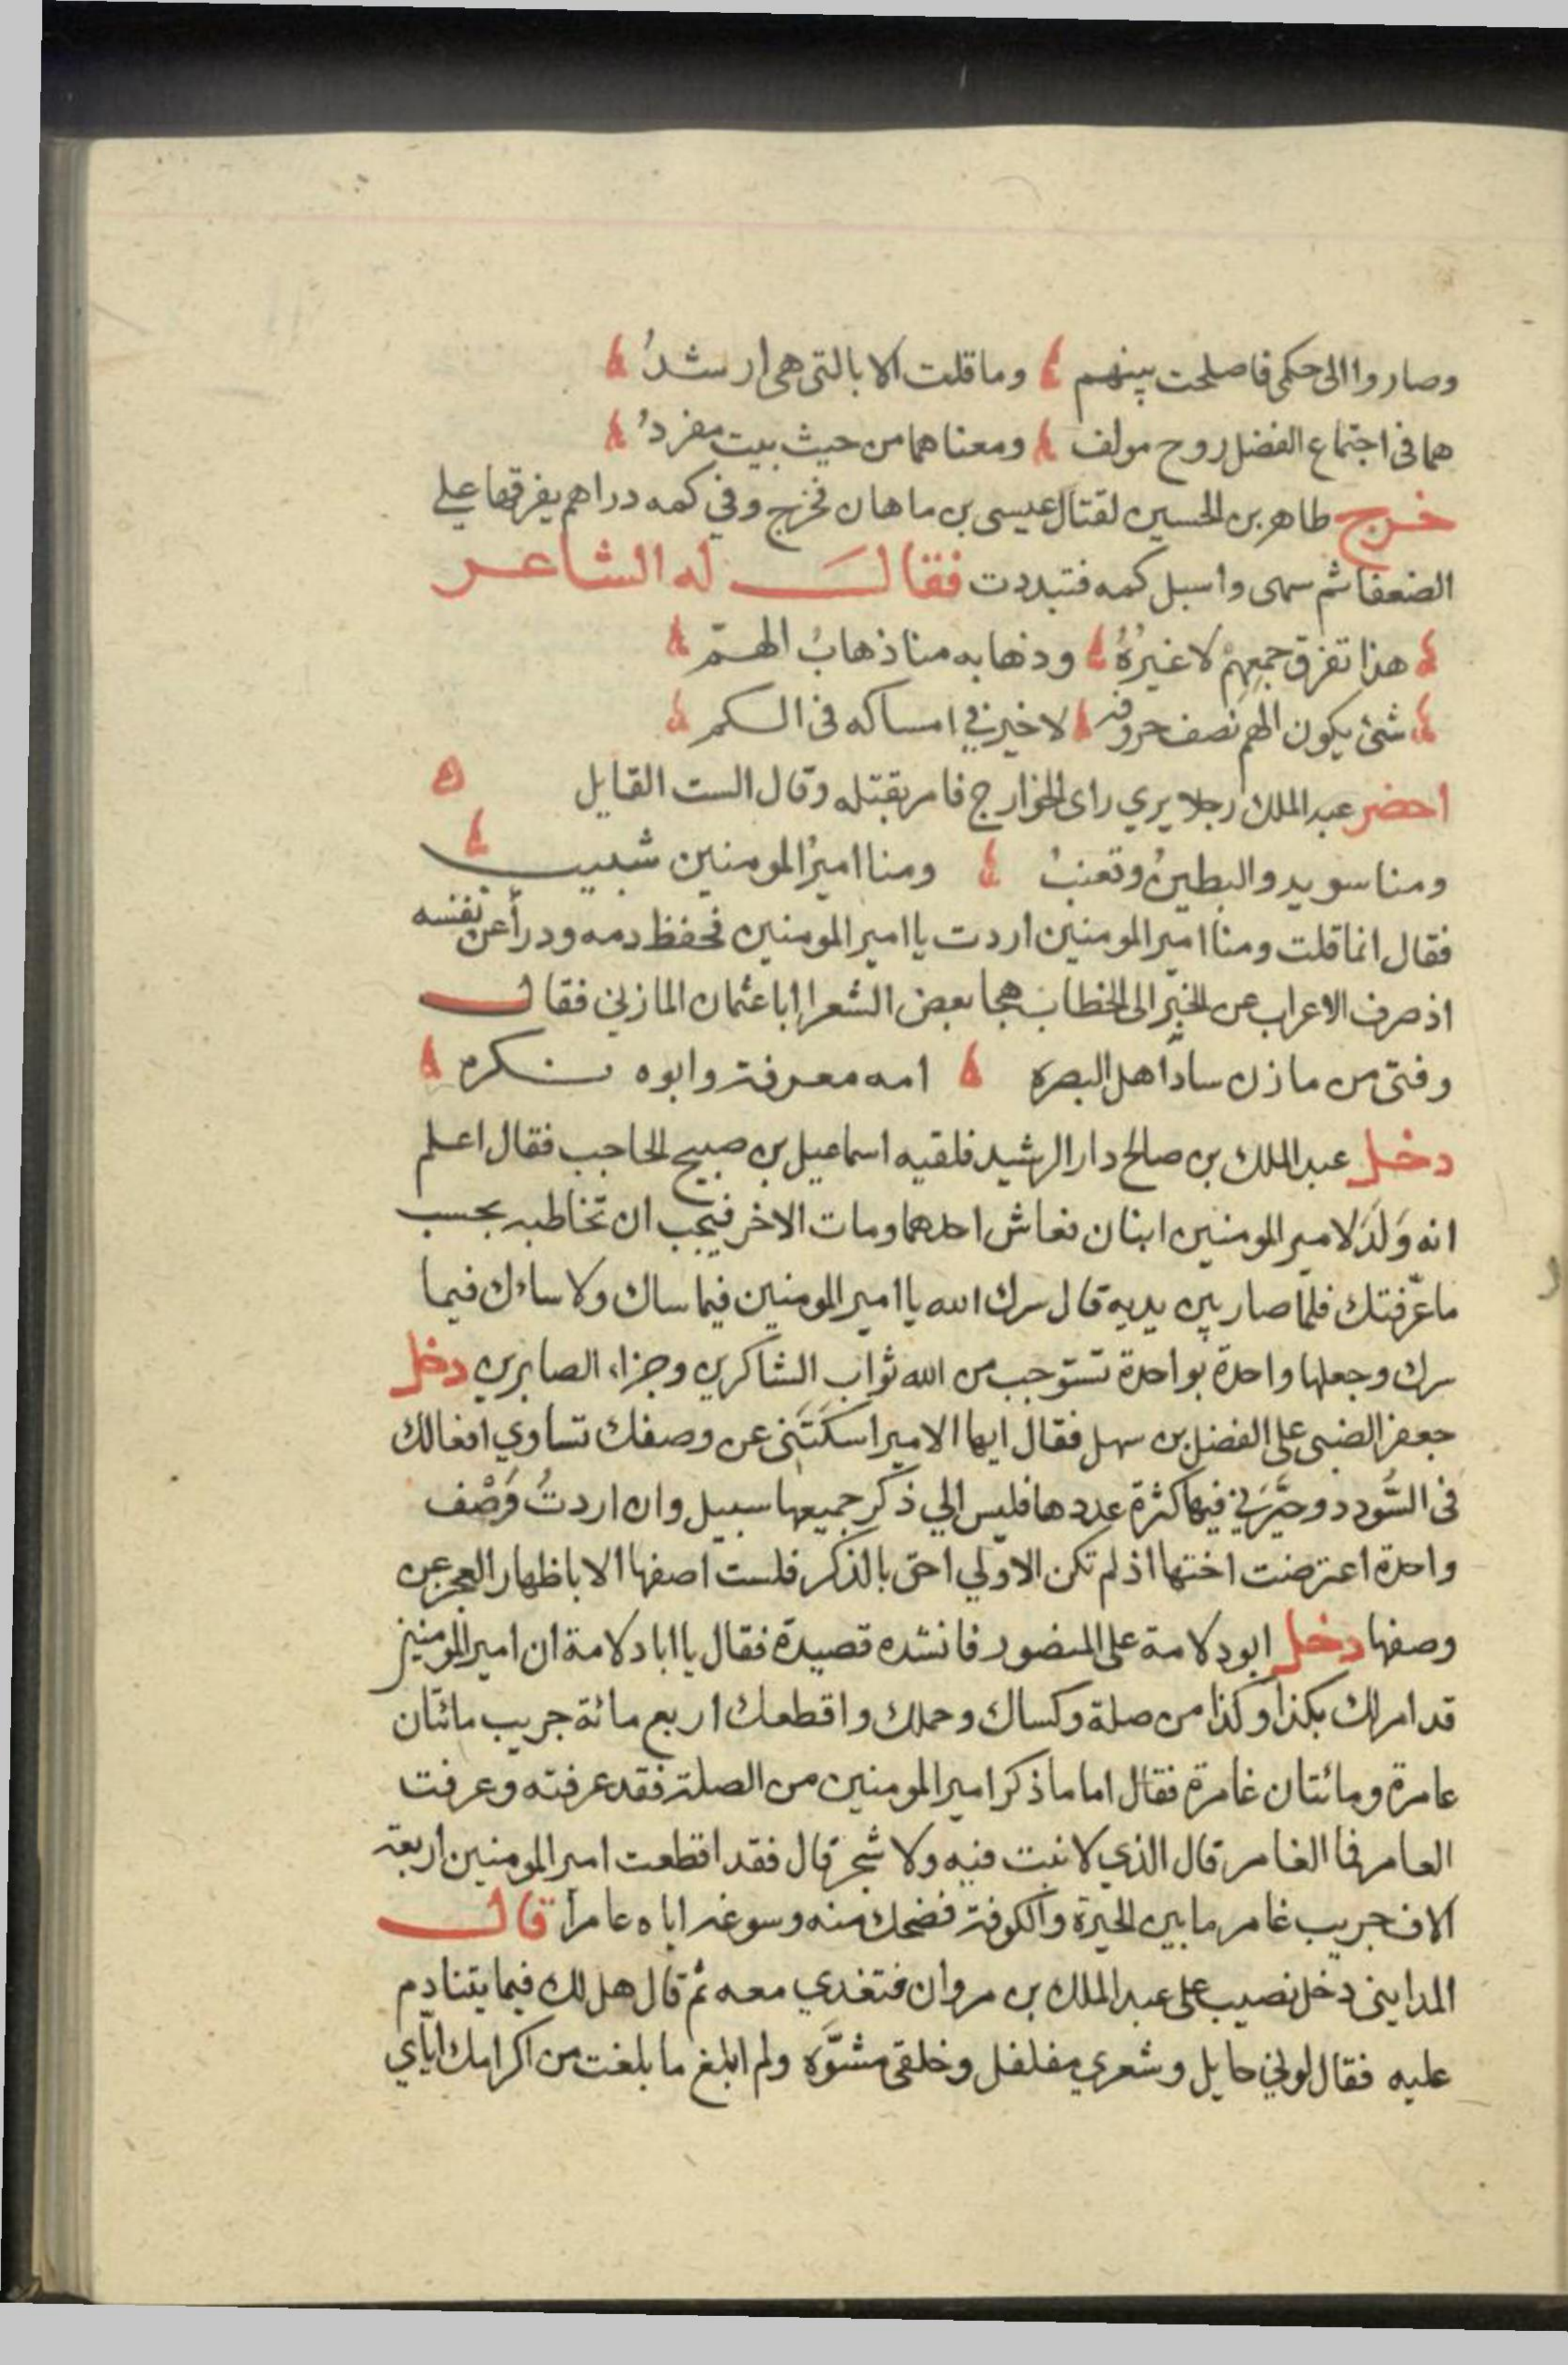 وصاروا الى حكمى فاصلحت بينهم وما قلت الا بالتى هى ارشدُ
هما فى اجتماع الفضل روح مولف ومعناهما من حيث بيت مفردُ
خرج طاهر بن الحسين لقتال عيسى بن ماهان فخرج وفي كمه دراهم يفرقها علي
الضعفا ثم سهى واسبل كمه فتبددت فقال له الشاعر
هذا تفرق جمعهم لا غيرُهُ وذهابه منا ذهابُ الهمّ
شئ يكون الهم نصف حروفه لا خير في امساكه فى الكم
احضر عبد الملك رجلا يري راى الخوارج فامر بقتله وقال الست القايل
ومنا سويد والبطينُ وقعنبُ ومنا اميرُ المومنين شبيب
فقال انما قلت ومنا امير المومنين اردت يا امير المومنين فحفظ دمه ودرأ عن نفسه
اذ صرف الاعراب عن الخبر الى الخطاب هجا بعض الشعرا ابا عثمان المازني فقال
وفتى من مازن سادأهل البصره امه معرفة وابوه نكره
دخل عبد الملك بن صالح دار الرشيد فلقيه اسماعيل بن صبيح الحاجب فقال اعلم
انه وَلَدَ لامير المومنين ابنان فعاش احدهما ومات الاخر فيجب ان تخاطبه بحسب
ما عرّفتك فلما صار بين يديه قال سرك الله يا امير المومنين فيما ساك ولا ساءك فيما
سرك وجعلها واحدة بواحدة تستوجب من الله ثواب الشاكرين وجزاء الصابرين دخل
جعفر الضبى على الفضل بن سهل فقال ايها الامير اسكتَنى عن وصفك تساوي افعالك
فى السُّودد وحيّرني فيها كثرة عددها فليس الي ذكر جميعها سبيل وان اردتُ وَصْف
واحدة اعترضت اختها اذ لم تكن الاولي احق بالذكر فلست اصفها الا باظهار العجز عن
وصفها دخل ابو دلامة على المنصور فانشده قصيدة فقال يا ابا دلامة ان امير المومنين
قد امر لك بكذا وكذا من صلة وكساك وحملك واقطعك اربع مائة جريب مائتان
عامرة ومائتان غامرة فقال اما ما ذكر امير المومنين من الصلة فقد عرفته وعرفت
العامر فما الغامر قال الذي لا نبت فيه ولا شجر قال فقد اقطعت امير المومنين اربعة
الاف جريب غامر ما بين الحيرة والكوفة فضحك منه وسوغه اياه عامرا قال
المدايني دخل نصيب على عبد الملك بن مروان فتغدي معه ثم قال هل لك فيما يتنادم
عليه فقال لوني حايل وشعري مفلفل وخلقى مشوَّه ولم ابلغ ما بلغت من اكرامك اياي